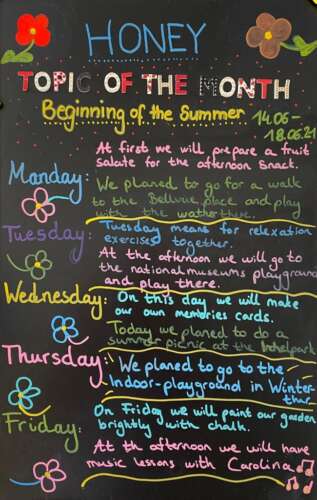 HONEY
TOPIC OF THE MONTH
Beginning of the Summer 14.06-
18.06.21
At first we will prepare a fruit
salate for the afternoon snack.
Monday:
We planed to go for a walk
to the Bellvue place and play
with the
Tuesday:
Tuesday means for relexation
exercised together.
At the afternoon we will go to
the nationalmuseums playground
and play there.
Wednesday:
On this day we will make
our own memories cards.
Today we planed to do a
summer picnic at the
Thursday:
We planed to go to the
Indoor-playground in Winter-
thur
Friday:
On Friday we will paint our garden
brightly with chalk.
At th afternoon we will have
music lessons with Carolina